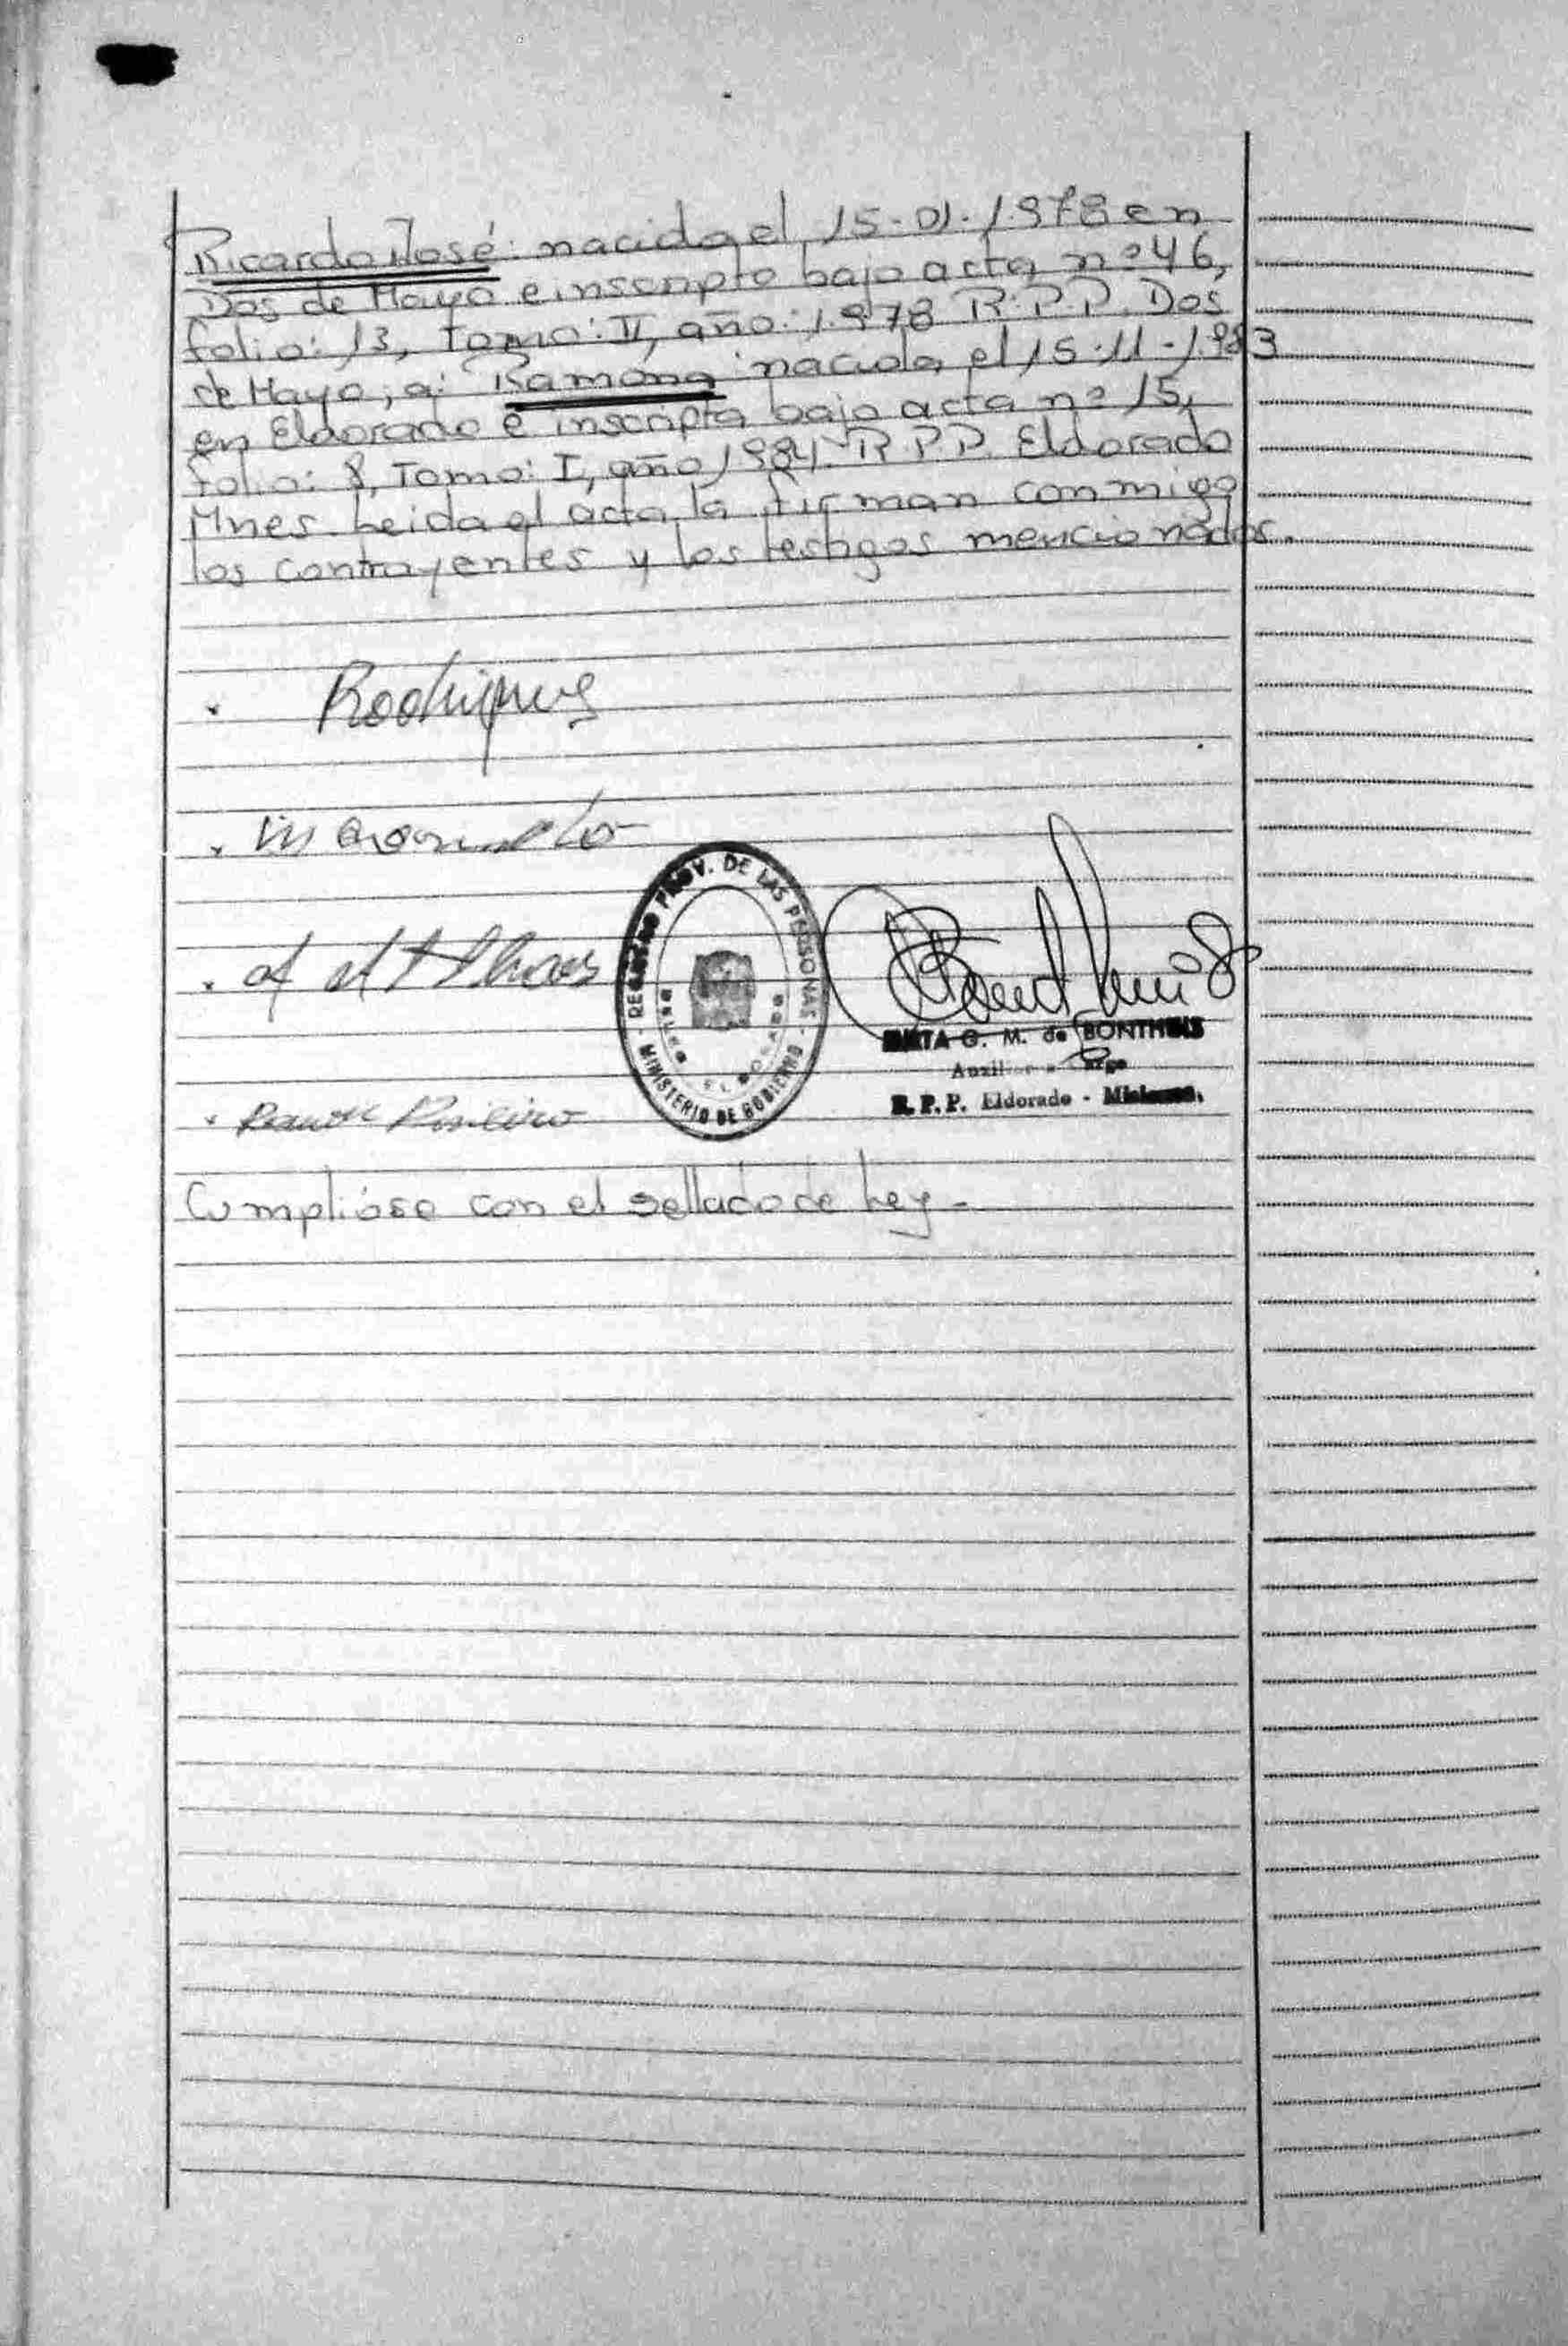 Ricardo José: nacido el 15-01-1.978 en
Dos de Mayo e inscripto bajo acta nº 46,
folio: 13, Tomo: II, año: 1.978 R.P.P. Dos
de Mayo; a: Ramona nacida el 15-11-1.983
en Eldorado e inscripta bajo acta nº 15,
folio: 8, Tomo: I, año 1984. R.P.P. Eldorado
Mnes. Leida el acta la firman conmigo
los contrayentes y los testigos mencionados.
REGISTRO PROV. DE LAS PERSONAS
MINISTERIO DE GOBIERNO
G. M. de BONTHEIS
R. P. P. Eldorado - Misiones.
Cumplióse con el sellado de Ley -